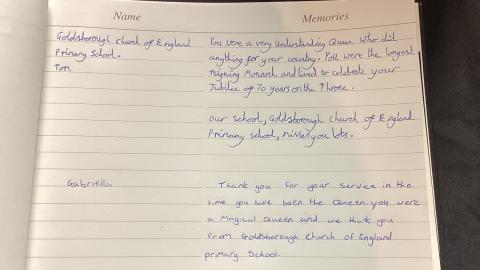 Name Memories
Goldsborough church of England
Primary School.
Tom
You were a very understanding Queen who did
anything for your country. You were the longest
reigning Monarch and lived to celebrate your
Jubilee of 70 years on the Throne.
our school, Goldsborough church of England
Primary school, misses you lots.
Gabriella
Thank you for your service in the
time you have been the Queen. you were
a Magical Queen and we thank you
from Goldsborough Church of England
primary School.